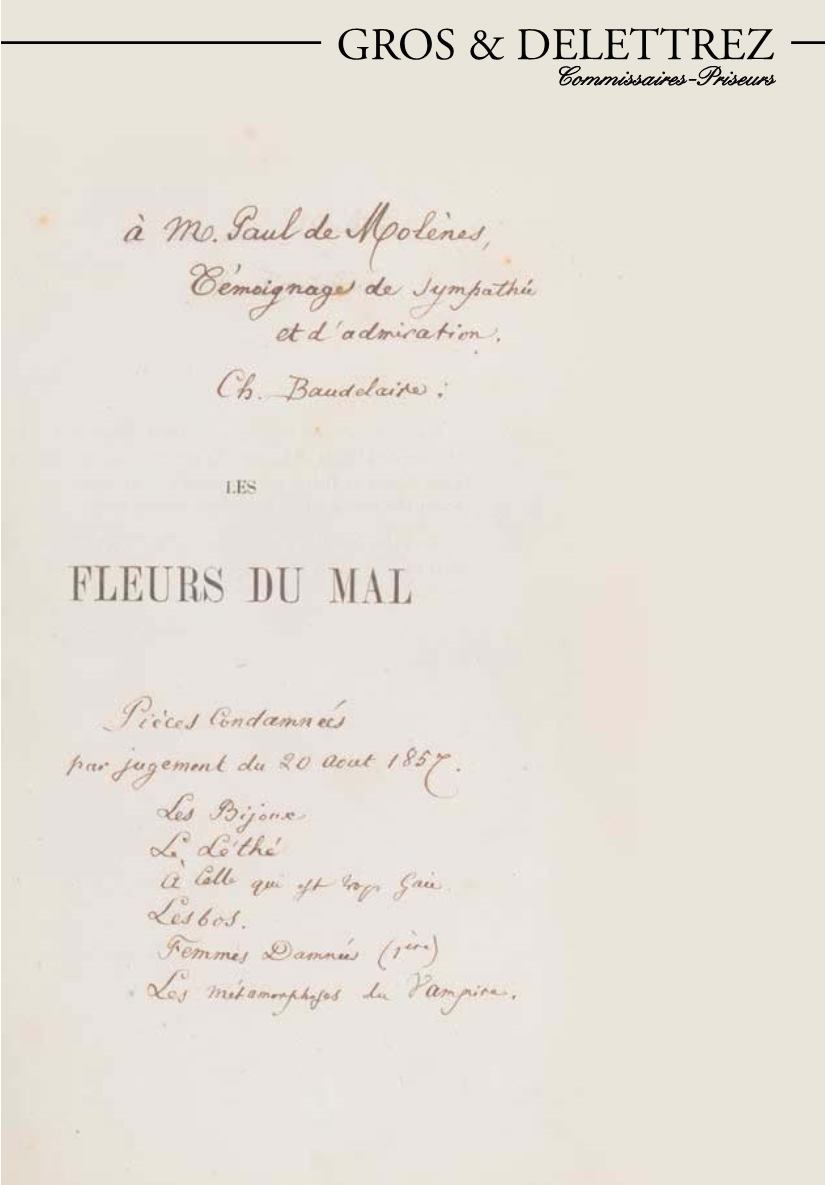 GROS & DELETTREZ
Commissaires-Priseurs
à M. Paul de Molènes,
Témoignage de Sympathie
et d'admiration.
Ch. Baudelaire.
LES
FLEURS DU MAL
Pièces Condamnées
par jugement du 20 Aout 1857.
Les Bijoux
Le Léthé
À Celle qui est trop Gaie
Lesbos.
Femmes Damnées (1ère)
Les métamorphoses du Vampire.